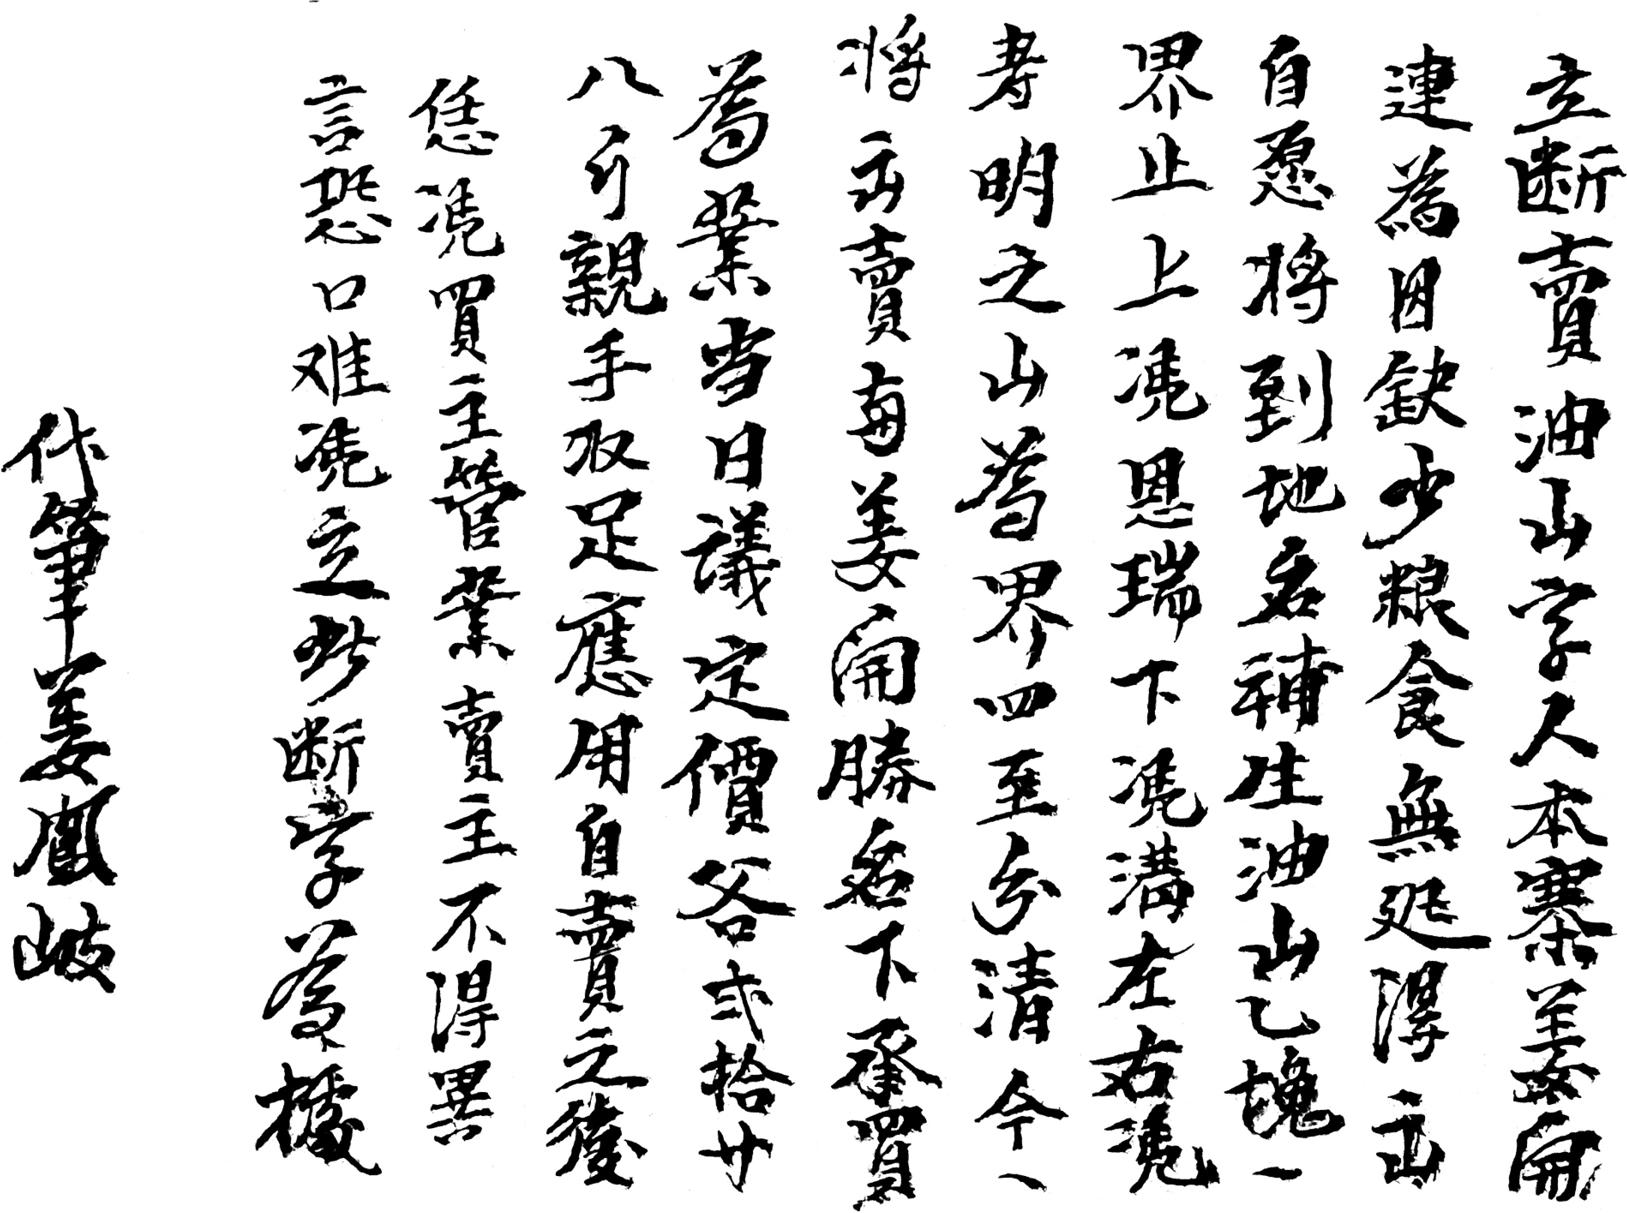 立断賣油山字人本寨姜開
連為因缺少粮食無延得出
自愿将到地名補生油山乙塊一
界止上凴恩瑞下凴溝左右凴
寿明之山為界四至分清今
将出賣與姜開勝名下承買
為業当日議定價谷弍拾廿
八斤親手收足應用自賣之後
恁凴買主管業賣主不得異
言恐口难凴立此断字為據
代筆姜鳳岐